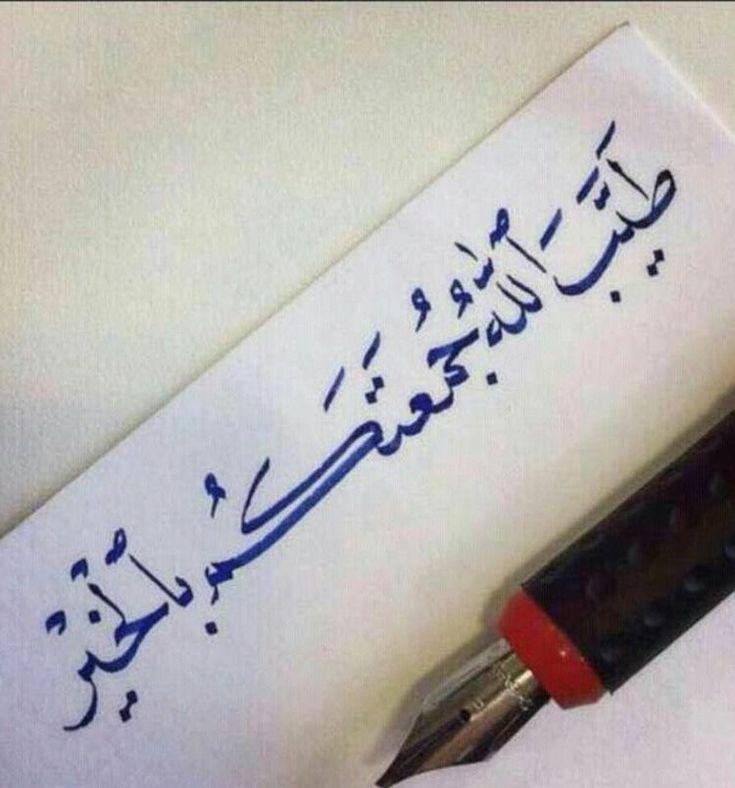 طَيَّبَ ٱللّٰهُ جُمُعَتَكُم بِٱلْخَيْرِ